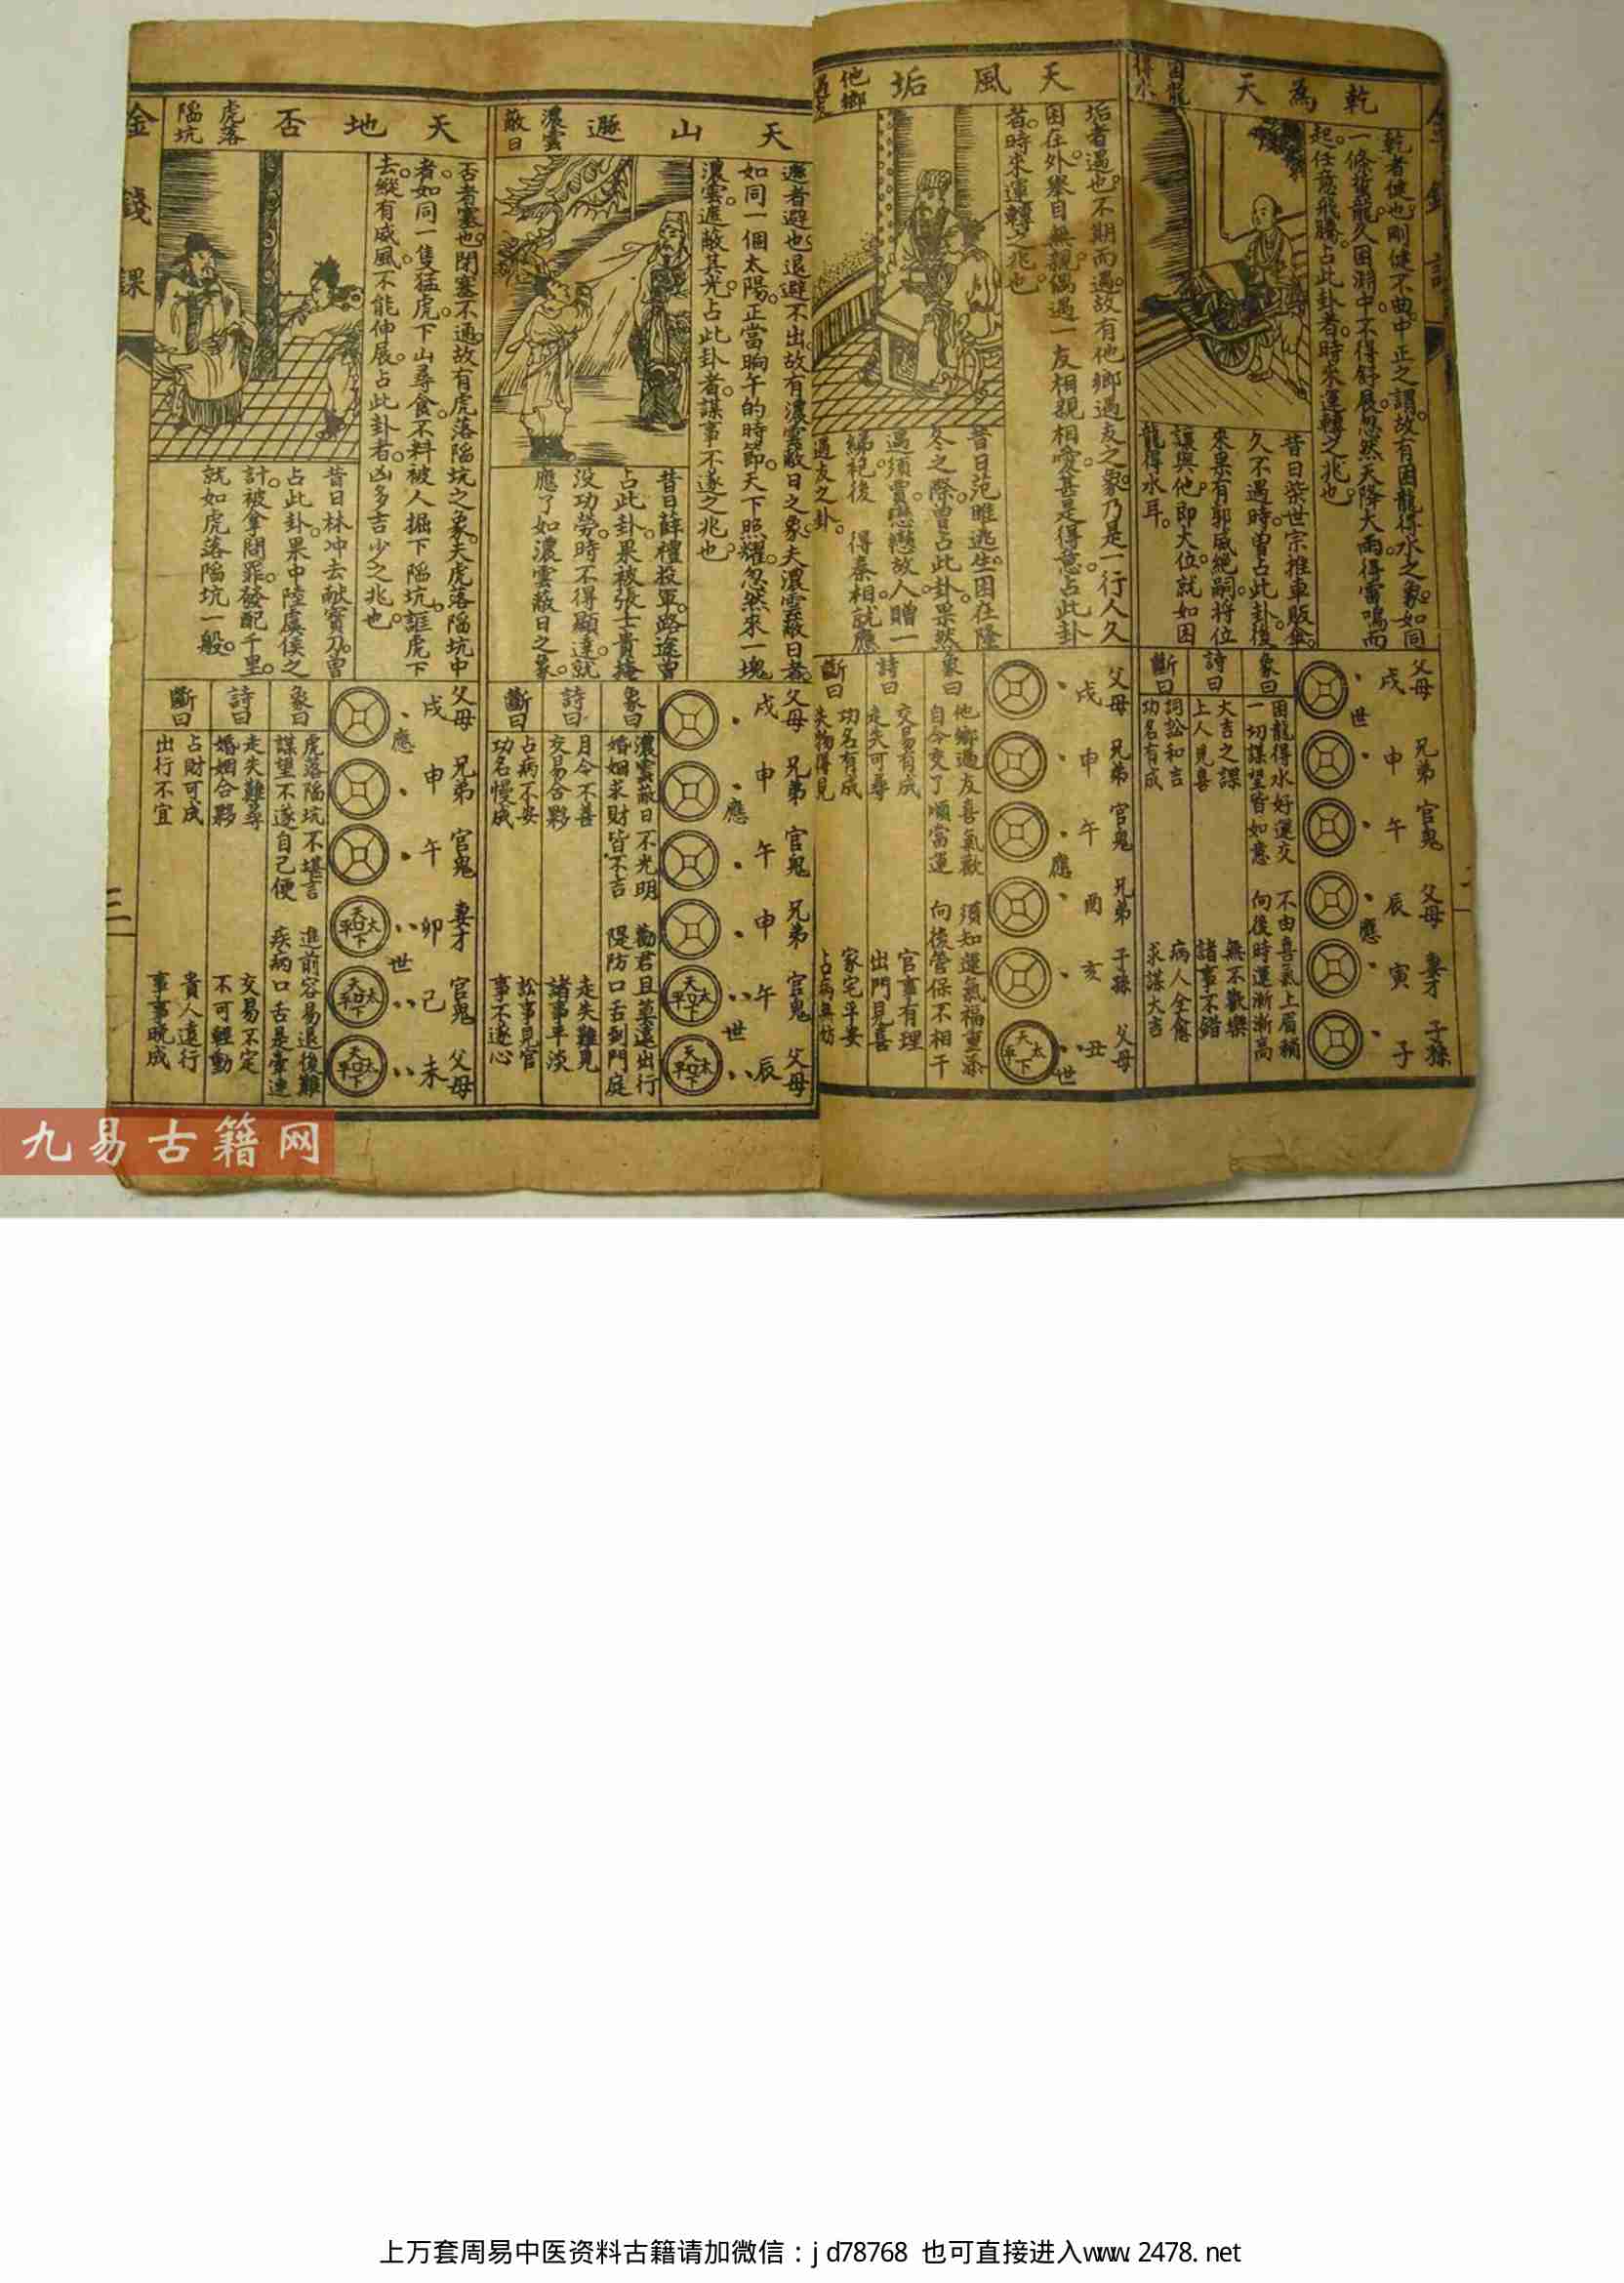 金錢課
乾為天
困龍得水
乾者健也。剛健不曲。中正之謂。故有困龍得水之象。如同
一條蛟龍。久困淵中。不得舒展。忽然天降大雨。得雷鳴而
起。任意飛騰。占此卦者。時來運轉之兆也。
昔日柴世宗推車販傘。
久不遇時。曾占此卦。後
來果有郭威絕嗣。將位
讓與他。即大位。就如困
龍得水耳。
父母 戌 世
兄弟 申
官鬼 午
父母 辰 應
妻才 寅
子孫 子
象曰
困龍得水好運交 不由喜氣上眉稍
一切謀望皆如意 向後時運漸漸高
詩曰
大吉之課 無不歡樂
上人見喜 諸事不錯
斷曰
詞訟和吉 病人全愈
功名有成 求謀大吉
天風垢
他鄉遇友
垢者遇也。不期而遇。故有他鄉遇友之象。乃是一行人久
困在外。舉目無親。偶遇一友。相親相愛。甚是得意。占此卦
者。時來運轉之兆也。
昔日范雎逃生。困在隆
冬之際。曾占此卦。果然
遇須賈。戀戀故人。贈一
綈袍後 得秦相。就應
遇友之卦。
父母 戌
兄弟 申
官鬼 午 應
兄弟 酉
子孫 亥
父母 丑 世
天下太平
象曰
他鄉遇友喜氣歡 須知運氣福重添
自今交了順當運 向後管保不相干
詩曰
交易有成 官事有理
走失可尋 出門見喜
斷曰
功名有成 家宅平安
失物得見 占病無妨
天山遯
濃雲蔽日
遯者避也。退避不出。故有濃雲蔽日之象。夫濃雲蔽日者。
如同一個太陽。正當晌午的時節。天下照耀。忽然來一塊
濃雲。遮蔽其光。占此卦者。謀事不遂之兆也。
昔日薛禮投軍。路途曾
占此卦。果被張士貴掩
沒功勞。時不得顯達。就
應了如濃雲蔽日之象。
父母 戌
兄弟 申 應
官鬼 午
兄弟 申
官鬼 午 世
父母 辰
天下太平
天下太平
象曰
濃雲蔽日不光明 勸君且莫遠出行
婚姻求財皆不吉 隄防口舌到門庭
詩曰
月令不善 走失難見
交易合夥 諸事平淡
斷曰
占病不安 訟事見官
功名慢成 事不遂心
天地否
虎落陷坑
否者塞也。閉塞不通。故有虎落陷坑之象。夫虎落陷坑中
者。如同一隻猛虎。下山尋食。不料被人掘下陷坑。誆虎下
去。縱有威風。不能伸展。占此卦者。凶多吉少之兆也。
昔日林冲去献寶刀。曾
占此卦。果中陸虞侯之
計。被拿問罪。發配千里。
就如虎落陷坑一般。
父母 戌 應
兄弟 申
官鬼 午
妻才 卯 世
官鬼 己
父母 未
天下太平
天下太平
天下太平
象曰
虎落陷坑不堪言 進前容易退後難
謀望不遂自己便 疾病口舌是牽連
詩曰
走失難尋 交易不定
婚姻合夥 不可輕動
斷曰
占財可成 貴人遠行
出行不宜 事事晚成
金錢課
三
九易古籍网
上万套周易中医资料古籍请加微信：jd78768 也可直接进入www.2478.net